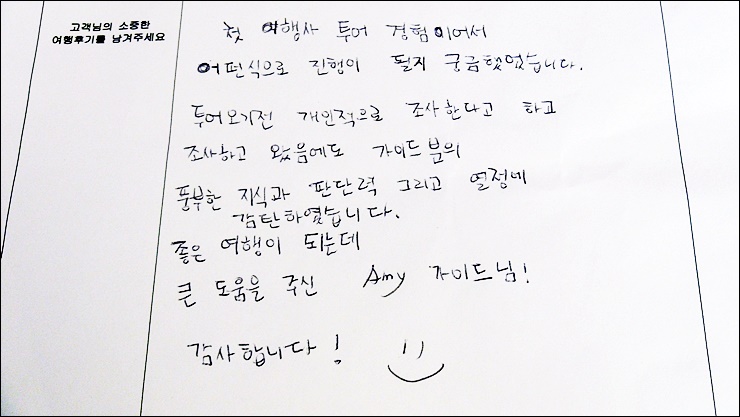 고객님의 소중한
여행후기를 남겨주세요
첫 여행사 투어 경험이어서
어떤식으로 진행이 될지 궁금했었습니다.
투어오기전 개인적으로 조사한다고 하고
조사하고 왔음에도 가이드분의
풍부한 지식과 판단력 그리고 열정에
감탄하였습니다.
좋은 여행이 되는데
큰 도움을 주신 Amy 가이드님!
감사합니다!